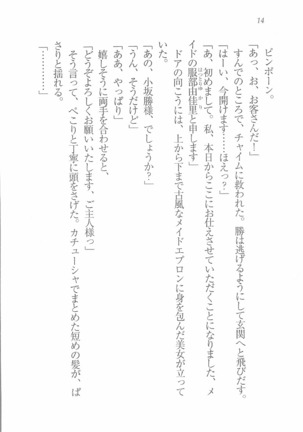 14
ピンポーン。
「あっ、お、お客さんだー」
すんでのところで、チャイムに救われた。勝は逃げるようにして玄関へと飛びだす。
「はーい、今開けます……ほえっ？」
「あ、初めまして。私、本日からここにお仕えさせていただくことになりました、メ
イドの服部由佳里と申します」
ドアの向こうには、上から下まで古風なメイドエプロンに身を包んだ美女が立って
いた。
「あの、小坂勝様、でしょうか？」
「うん、そうだけど」
「ああ、やっぱり」
嬉しそうに両手を合わせると、
「どうぞよろしくお願いいたします、ご主人様っ」
そう言って、ぺこりと丁寧に頭をさげた。カチューシャでまとめた短めの髪が、ぱ
さりと揺れる。
「…………」